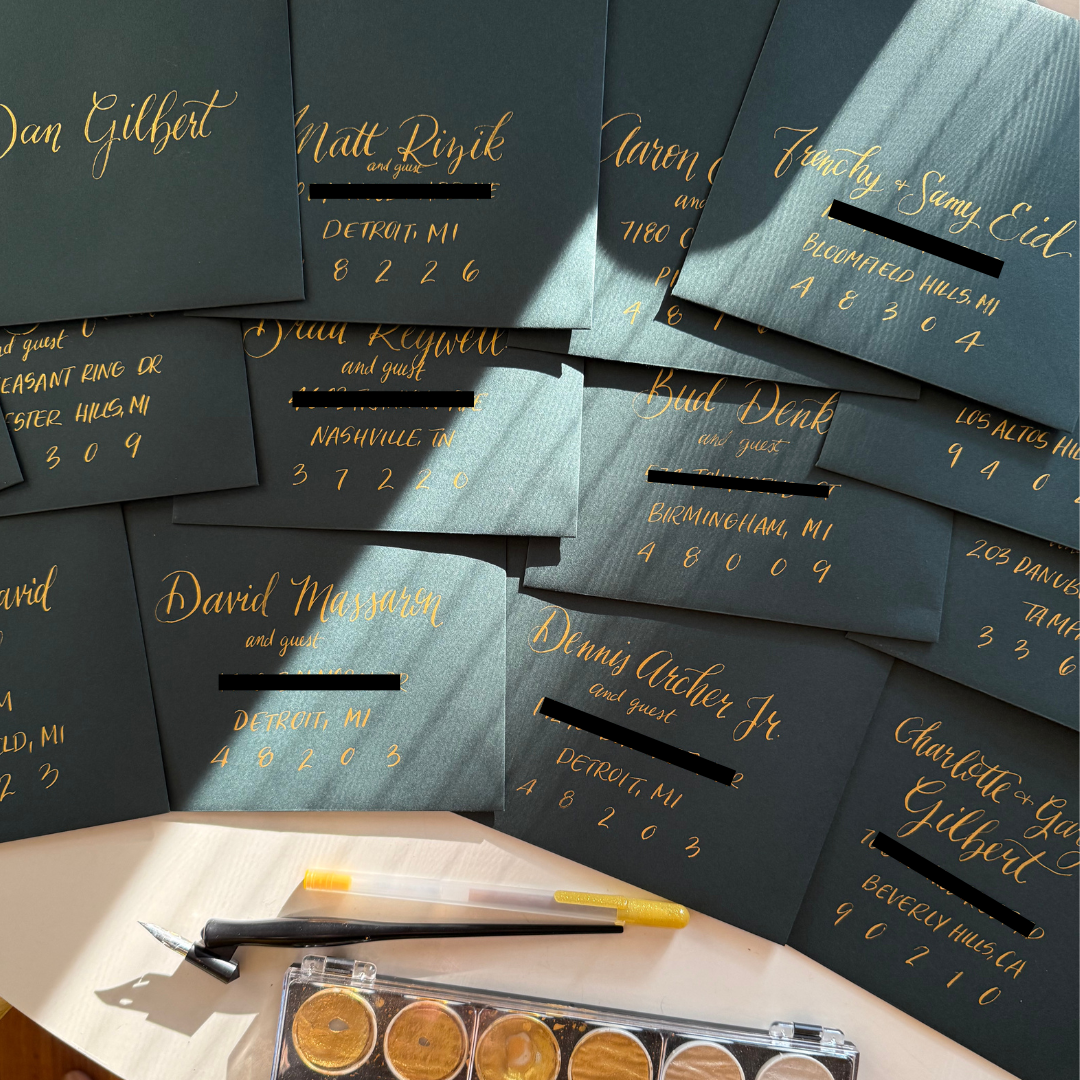 Dan Gilbert
Matt Rizik
and guest
DETROIT, MI
8 2 2 6
Aaron
and
7180
4 8 1
Frenchy & Samy Eid
BLOOMFIELD HILLS, MI
4 8 3 0 4
and guest
EASANT RING DR
ESTER HILLS, MI
3 0 9
Brad Keywell
and guest
NASHVILLE, TN
3 7 2 2 0
Bud Denk
and guest
BIRMINGHAM, MI
4 8 0 0 9
LOS ALTOS HIL
9 4 0
203 DANUB
TAMPA
3 3 6
avid
LD, MI
2 3
David Massaron
and guest
DETROIT, MI
4 8 2 0 3
Dennis Archer Jr.
and guest
DETROIT, MI
4 8 2 0 3
Charlotte & Gary
Gilbert
BEVERLY HILLS, CA
9 0 2 1 0